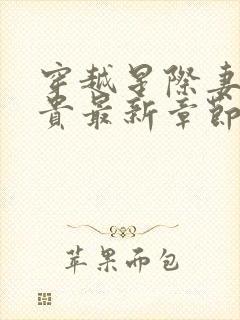 穿越星際妻
貴最新章節
苹果而包